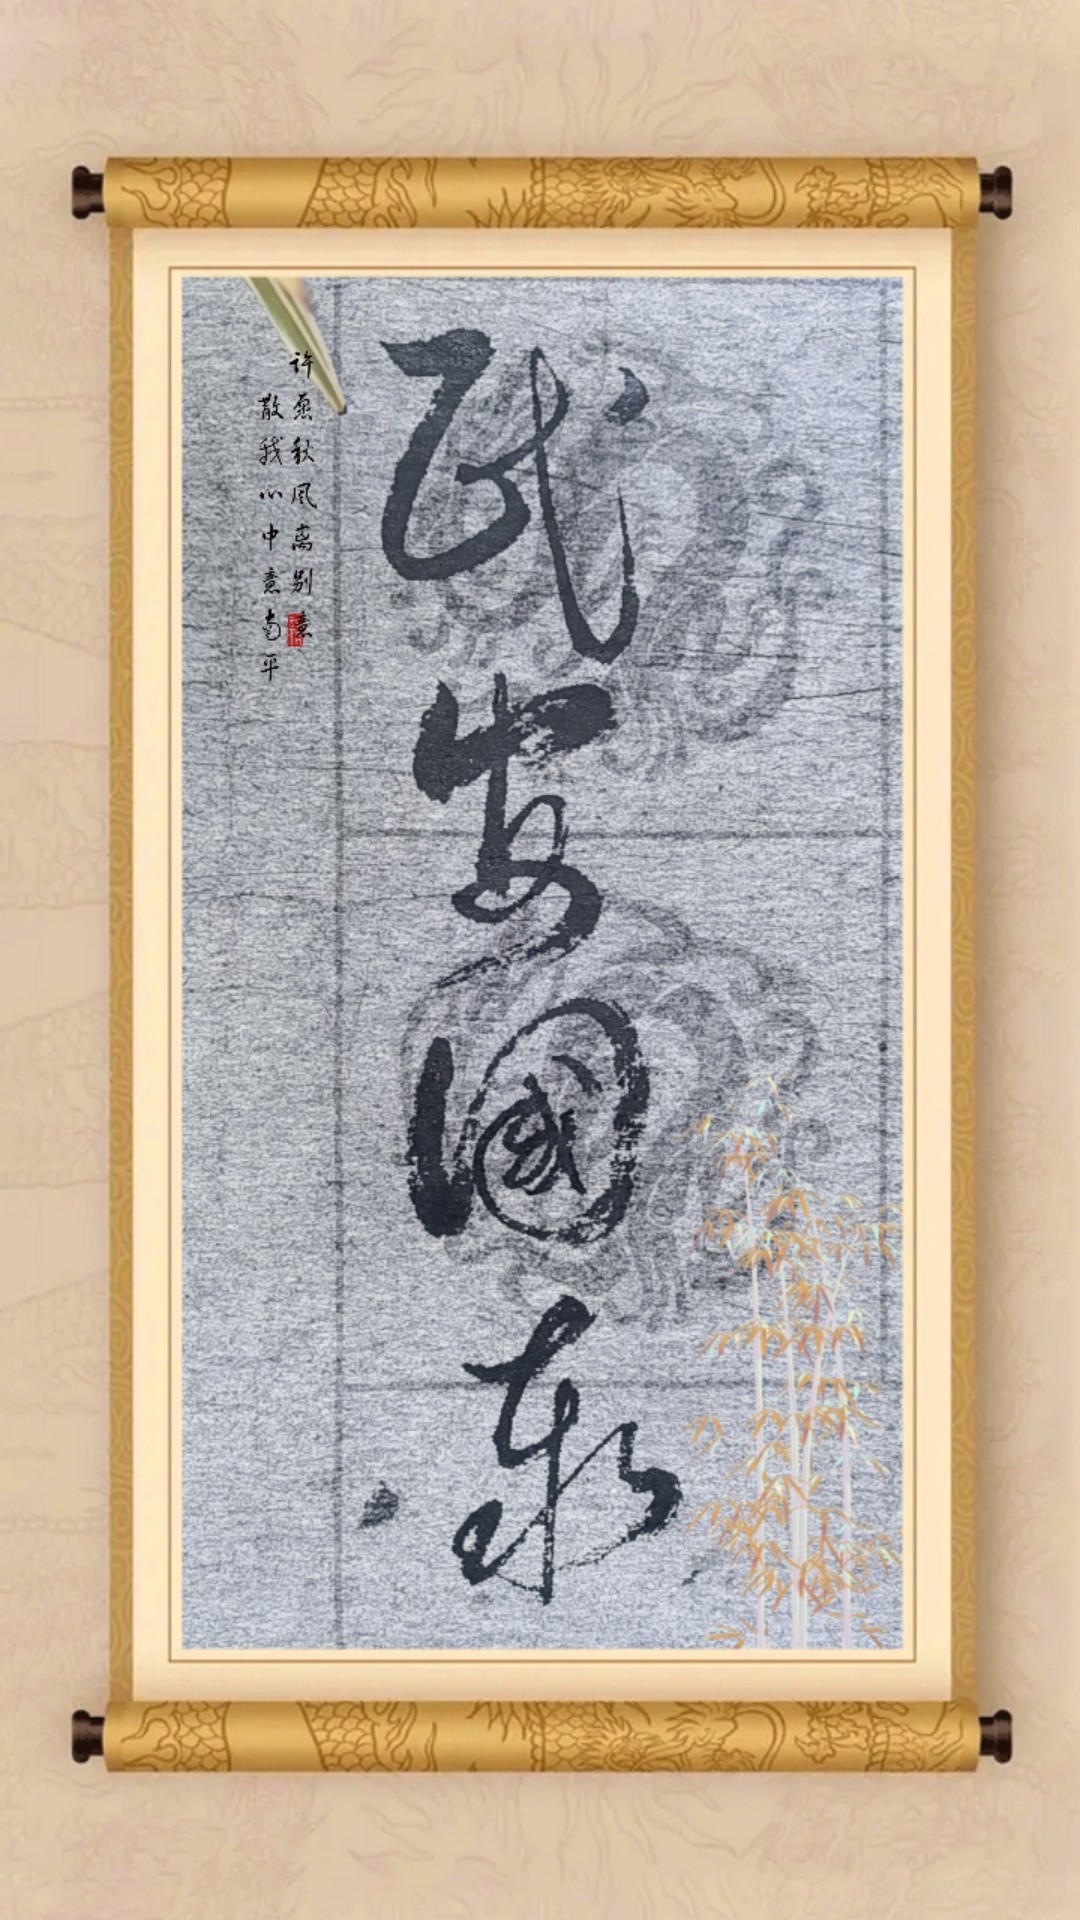 民安國泰
许愿秋风离别意
散我心中意南平